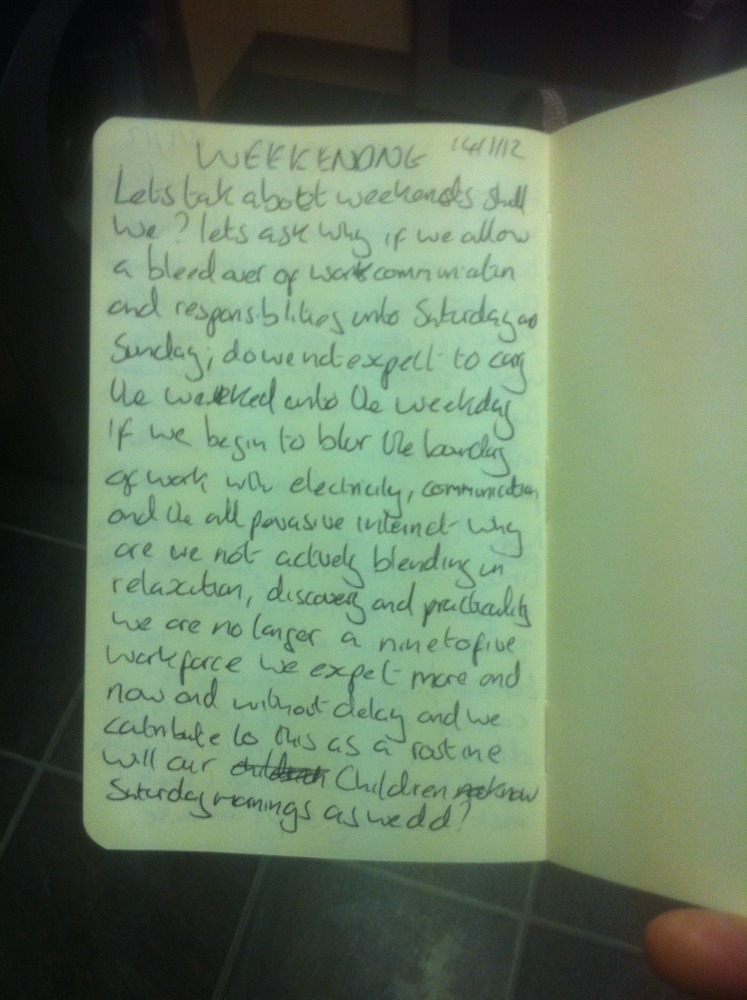 WEEKENDNG 14/1/12
Lets talk abott weekends shall
We? lets ask why if we allow
a bleed over of work communication
and responsiblities into Saturday and
Sunday; do we not expect to carry
the weekend into the weekday
If we begin to blur the bounday
of work with electricity, communication
and the all pevasive internet why
are we not actively blending in
relaxation, discovery and practicality
We are no longer a nine to five
Workforce we expect more and
now and without delay and we
contribute to this as a routine
Will our Children know
Saturday mornings as we did?